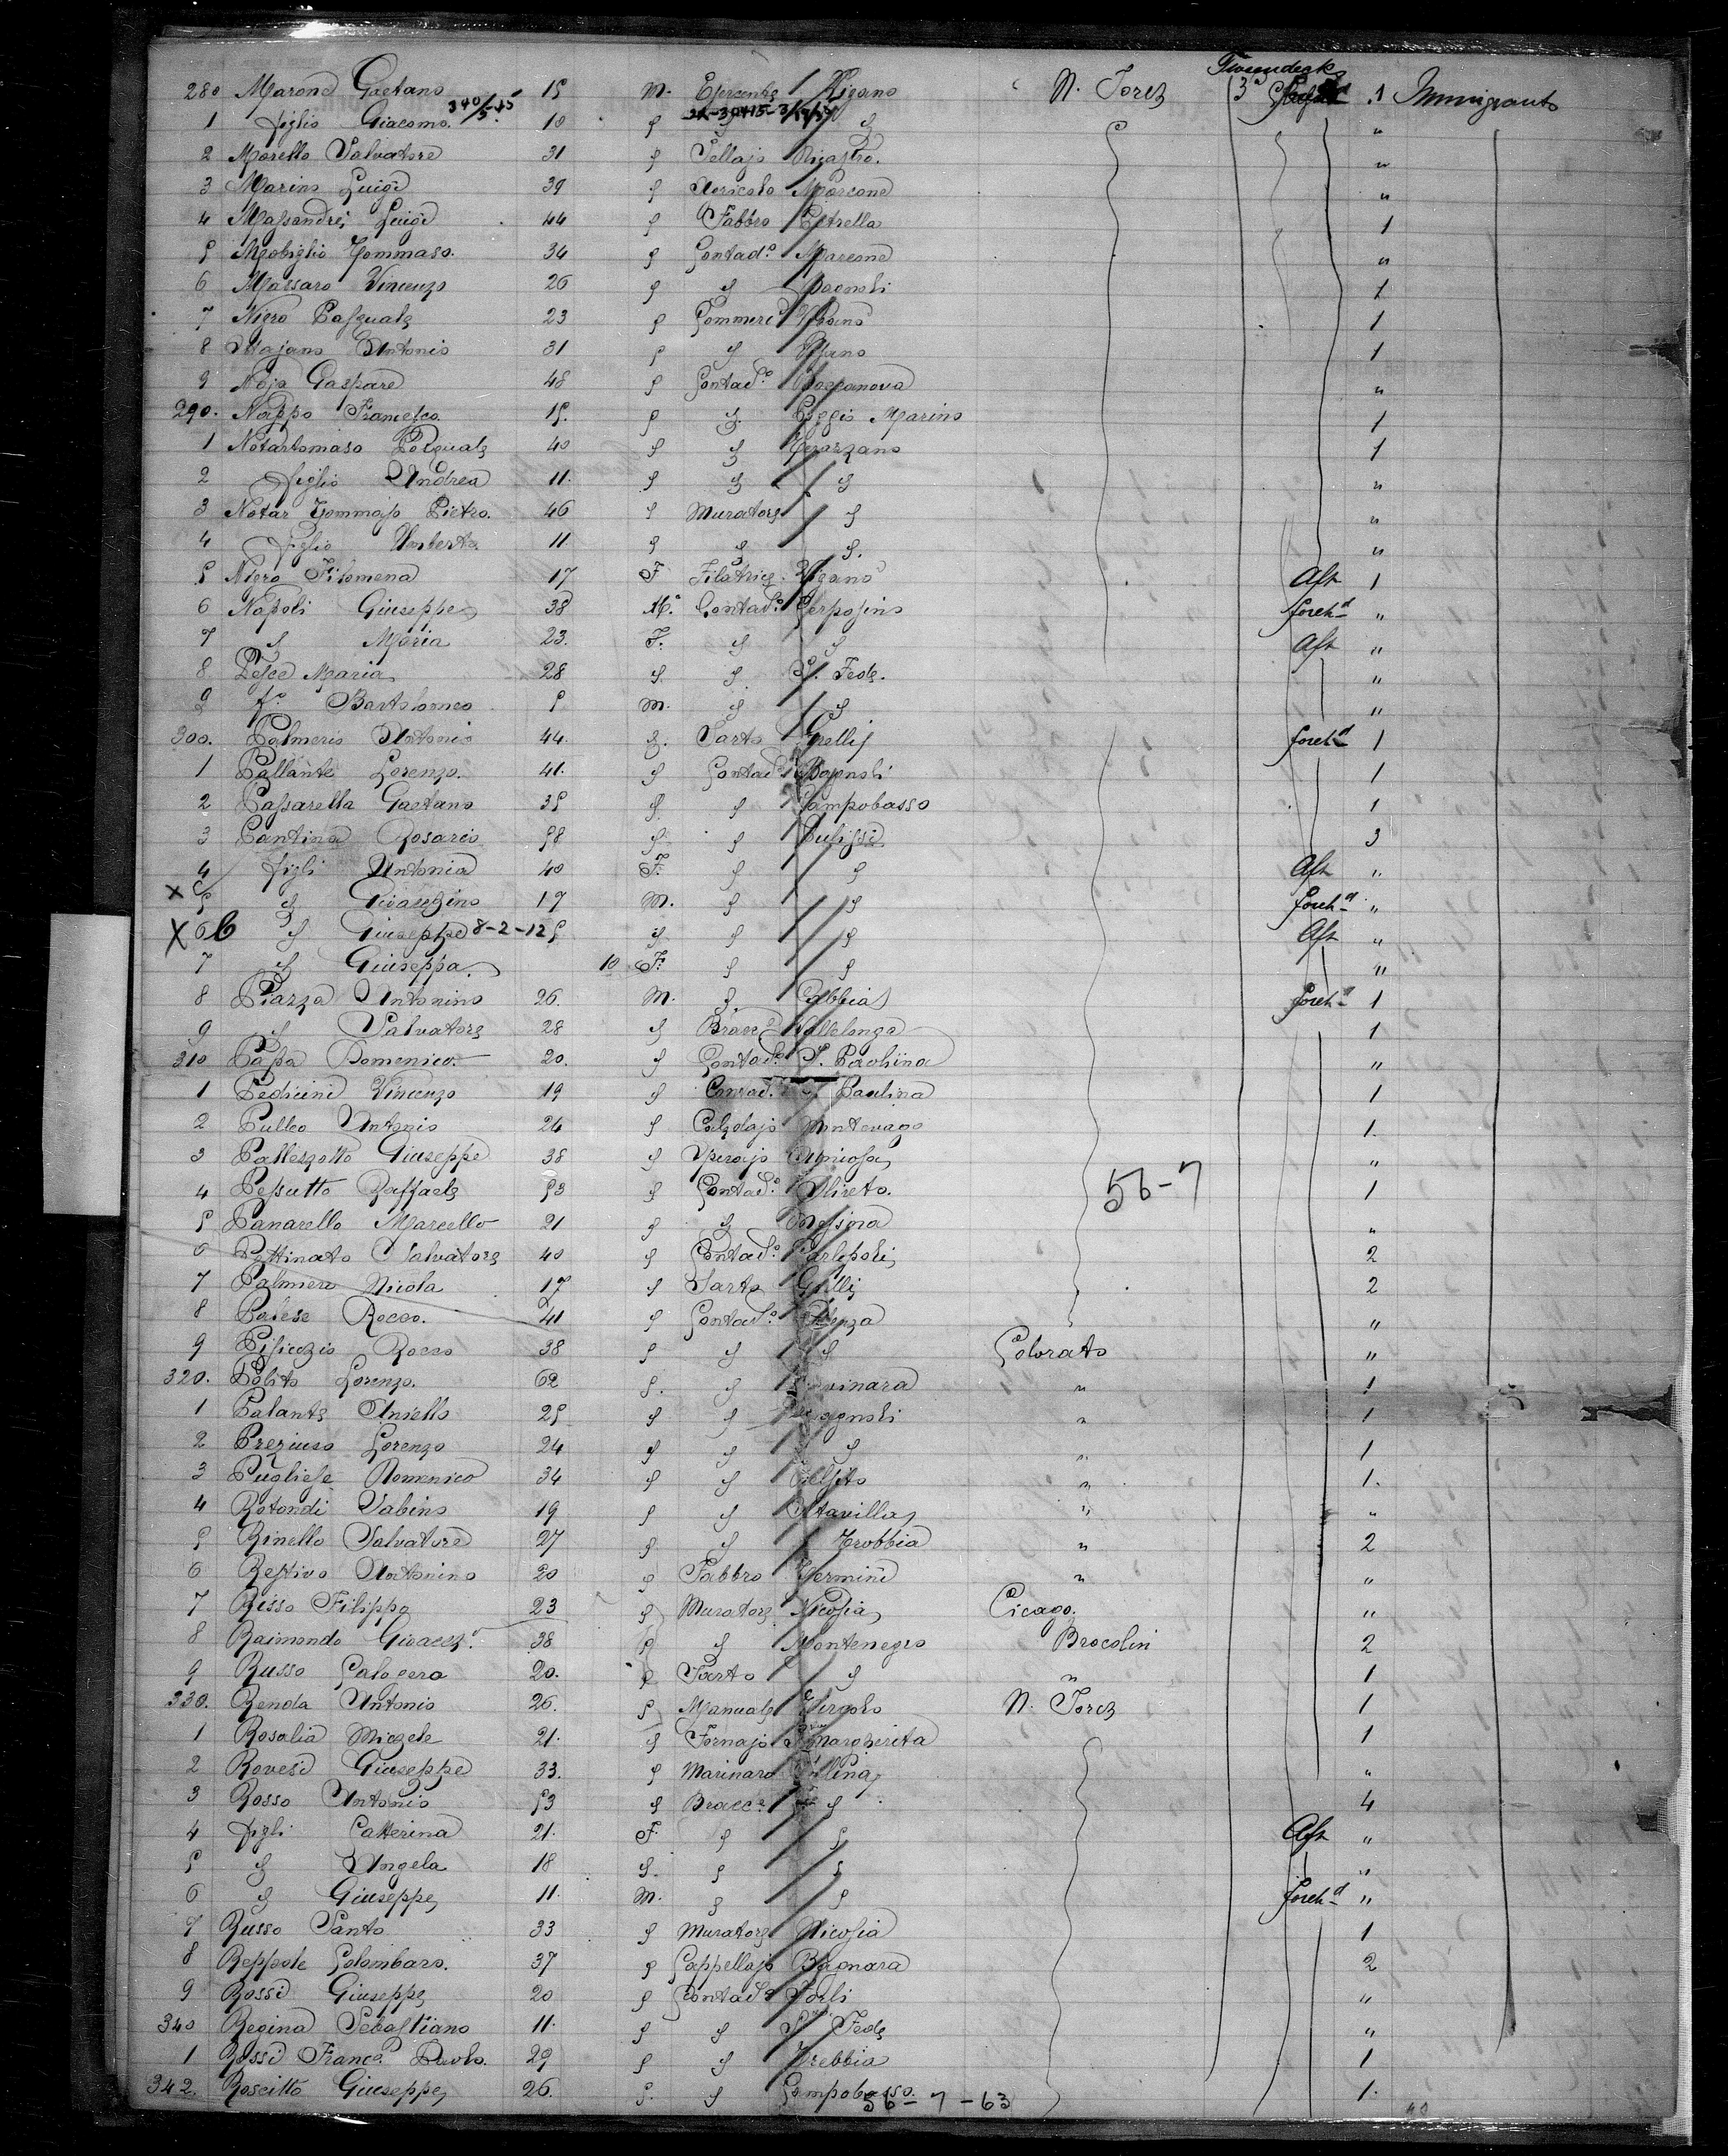 Tweendecks
280 Marone Gaetano 15 M. Esercente Rigano N. Jorch 3a 1 Immigrants
340/5-15
1 figlio Giacomo. 10 " "
2 Morello Salvatore 31 " Sellajo "
3 Marino Luigi 39 " Agricolo Morcone "
4 Massandrei Luigi 44 " Fabbro Petrella 1
5 Mobiglio Tommaso. 34 " Contado. Morcone "
6 Massaro Vincenzo 26 " " Bagnoli 1
7 Nigro Pasquale 23 " Commerc 1
8 Majano Antonio 31 " " 1
9 Noja Gaspare 48 " Contado. Roccanova "
290. Nappo Francesco 15. " " Poggio Marino 1
1 Notartomaso Pasquale 40 " " 1
2 figlio Andrea 11. " " " "
3 Notar Tommaso Pietro. 46 " Muratore " "
4 figlio 11 " " " "
5 Nigro Filomena 17 F Filatrice Rigano Aft 1
6 Napoli Giuseppe 38 M. Contado. foreh-d "
7 " Maria 23. F. " " Aft "
8 Pesce Maria 28 " " S. Fede. "
9 fo Bartolomeo 5 M. " " "
300. Palmerio Antonio 44. " Sarto Grelli foreh-d 1
1 Pallante Lorenzo. 41. " Contado Bagnoli 1
2 Passarella Gaetano 35 " " Campobasso 1
3 Pantina Rosario 58 " " 3
4 figli Antonia 40 F. " " Aft "
X 5 " Gioacchino 17 M. " " foreh-d "
X 6 6 " Giuseppe 8-2-12 5 " " " Aft "
7 " Giuseppa 10 F. " " "
8 Piazza Antonino 26. M. " foreh-d 1
9 " Salvatore 28 " Bracc Vallelonga 1
310 Papa Domenico. 20. " Contado S. Paolina "
1 Pedicini Vincenzo 19 " Contad. S. Paulina 1
2 Pulleo Antonio 24 " Calzolajo Montevago 1.
3 Pallezzotto Giuseppe 38 " Operajo "
4 Pessutto Raffaele 53 " Contado. Olireto. 1
5 Panarello Marcello 21 " " Messina "
6 Pettinato Salvatore 40 " Contado. Carlopoli 2
7 Palmiero Nicola 17 " Sarto Grelli 2
8 Padese Rocco. 41 " Contado. Potenza "
9 Rocco 38 " " " Colorato "
320. Polito Lorenzo. 62 " " Cervinara " 1
1 Palante Aniello 25 " " Bagnoli " 1
2 Preziuso Lorenzo 24 " " " " 1
3 Pugliese Domenico 34 " " " 1.
4 Rotondi Sabino 19 " " Altavilla " "
5 Rinello Salvatore 27 " " Trobbia " 2
6 Restivo Antonino 20 " Fabbro Termini " "
7 Risso Filippo 23 " Muratore Nicosia Cicago. "
8 Raimondo Gioacc. 38 " " Montenegro Brocolin 2
9 Russo Calogero 20. " Sarto " " 1
330. Renda Antonio 26. " Manuale N. Jorch 1
1 Rosalia Michele 21. " Fornajo S. Margherita 1
2 Rovesi Giuseppe 33. " Marinaro "
3 Rosso Antonio 53 " Bracc. " 4
4 figli Catterina 21. F. " " Aft "
5 " Angela 18 " " " "
6 " Giuseppe 11. M. " " foreh-d "
7 Russo Santo 33 " Muratore Nicosia 1
8 Reppole Colombaro. 37 " Cappellajo Bagnara 2
9 Rossi Giuseppe 20 " Contado Forli "
340 Regina Sebastiano 11. " " S. Fede "
1 Rossi Franco. Paolo. 29 " " Trebbia 1
342. Roscitto Giuseppe 26. " " Campobasso. 1.
56-7
56-7-63